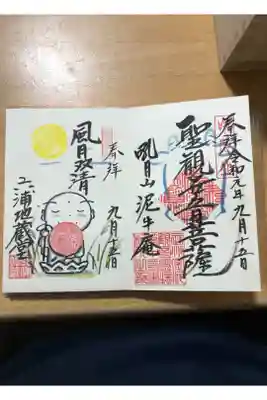 奉拝 令和元年 九月十五日
聖観世音菩薩
吼月山 泥牛庵
奉拝
九月十五日
風月双清
六浦地蔵堂